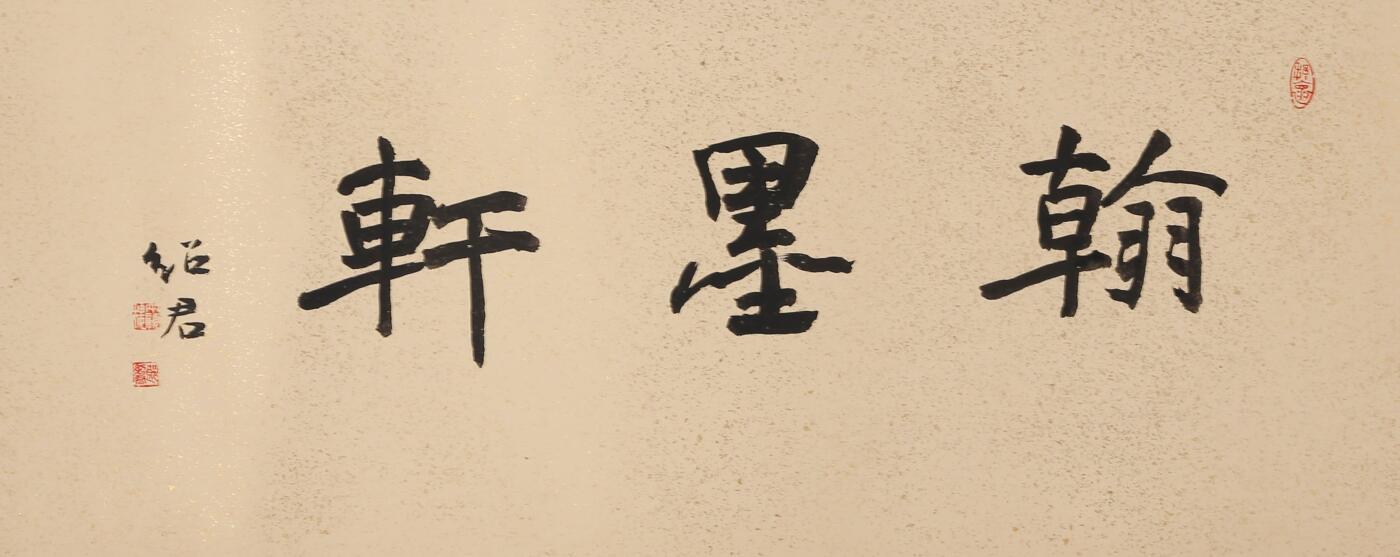 翰墨軒
紹君